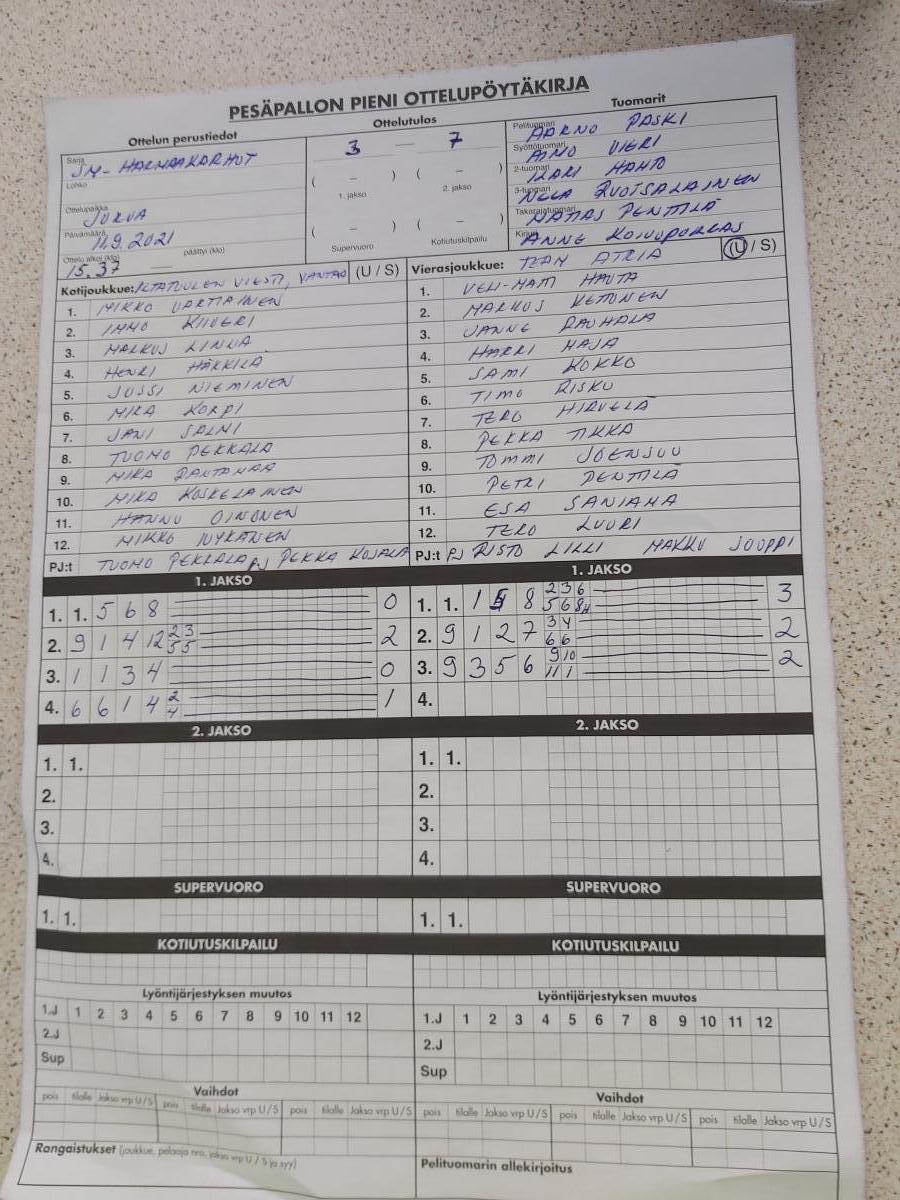 PESÄPALLON PIENI OTTELUPÖYTÄKIRJA
Ottelun perustiedot
Sarja SM-HARMAAKARHUT
Lohko
Ottelupaikka JURVA
Päivämäärä 11.9.2021
Ottelu alkoi (klo) 15.37 — päättyi (klo)
Ottelutulos
3 — 7
( – ) ( – )
1. jakso 2. jakso
( – ) ( – )
Supervuoro Kotiutuskilpailu
Tuomarit
Pelituomari AARNO PASKI
Syöttötuomari AIMO VIERI
2-tuomari ILARI HAHTO
3-tuomari NELLA RUOTSALAINEN
Takarajatuomari MATIAS PENTTILÄ
Kirjuri ANNE KOIVUPORRAS
Kotijoukkue: ILTATUULEN VIESTI, VANTAA (U / S)
1. MIKKO VARTIAINEN
2. IMMO KIIVERI
3. MARKUS LINNA
4. HENRI HÄKKILÄ
5. JUSSI NIEMINEN
6. MIKA KORPI
7. JANI SALMI
8. TUOMO PEKKALA
9. MIKA RANTANAA
10. MIKA KOSKELAINEN
11. HANNU OINONEN
12. MIKKO NYKÄNEN
PJ:t TUOMO PEKKALA PJ PEKKA KOJALA
Vierasjoukkue: TEAM ATRIA (U / S)
1. VELI-MATTI HAUTA
2. MARKUS KETTUNEN
3. JANNE RAUHALA
4. HARRI HAJA
5. SAMI KOKKO
6. TIMO RISKU
7. TERO HIRVELÄ
8. PEKKA TIKKA
9. TOMMI JOENSUU
10. PETRI PENTTILÄ
11. ESA SANIAHA
12. TERO LUURI
PJ:t PJ RISTO LILLI MARKKU JOUPPI
1. JAKSO
1. 1. 5 6 8 0
2. 9 1 4 12 2 3 5 5 2
3. 1 1 3 4 0
4. 6 6 1 4 2 4 1
2. JAKSO
1. 1.
2.
3.
4.
SUPERVUORO
1. 1.
KOTIUTUSKILPAILU
Lyöntijärjestyksen muutos
1.J 1 2 3 4 5 6 7 8 9 10 11 12
2.J
Sup
Vaihdot
pois tilalle Jakso vrp U / S pois tilalle Jakso vrp U / S pois tilalle Jakso vrp U / S
Rangaistukset (joukkue, pelaaja nro, jakso vrp U / S ja syy)
1. JAKSO
1. 1. 1 8 2 3 6 5 6 8H 3
2. 9 1 2 7 3 4 6 6 2
3. 9 3 5 6 9 10 11 1 2
4.
2. JAKSO
1. 1.
2.
3.
4.
SUPERVUORO
1. 1.
KOTIUTUSKILPAILU
Lyöntijärjestyksen muutos
1.J 1 2 3 4 5 6 7 8 9 10 11 12
2.J
Sup
Vaihdot
pois tilalle Jakso vrp U / S pois tilalle Jakso vrp U / S pois tilalle Jakso vrp U / S
Pelituomarin allekirjoitus